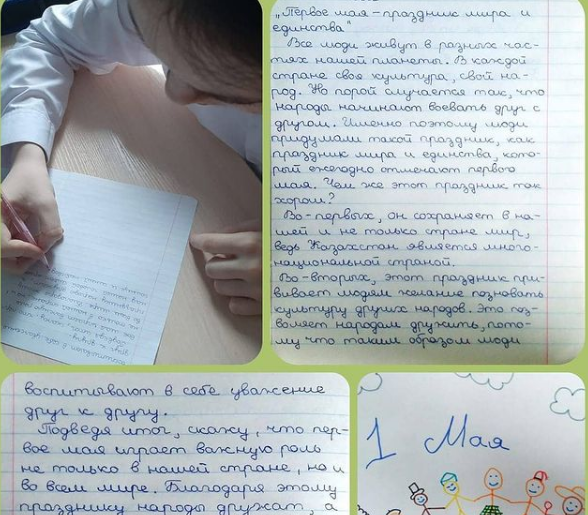 „Первое мая – праздник мира и
единства"
Все люди живут в разных час-
тях нашей планеты. В каждой
стране своя культура, свой на-
род. Но порой случается так, что
народы начинают воевать друг с
другом. Именно поэтому люди
придумали такой праздник, как
праздник мира и единства, кото-
рый ежегодно отмечают первого
мая. Чем же этот праздник так
хорош?
Во-первых, он сохраняет в на-
шей и не только стране мир,
ведь Казахстан является много-
национальной страной.
Во-вторых, этот праздник при-
вивает людям желание познавать
культуру других народов. Это поз-
воляет народам дружить, пото-
му что таким образом люди
воспитывают в себе уважение
друг к другу.
Подведя итог, скажу, что пер-
вое мая играет важную роль
не только в нашей стране, но и
во всем мире. Благодаря этому
празднику народы дружат, а
1 Мая